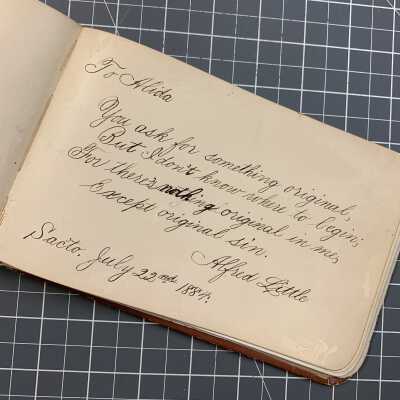 To Alida
You ask for something original,
But I don't know where to begin;
For there's nothing original in me,
Except original sin.
Alfred Little
Sacto. July 22nd 1884.